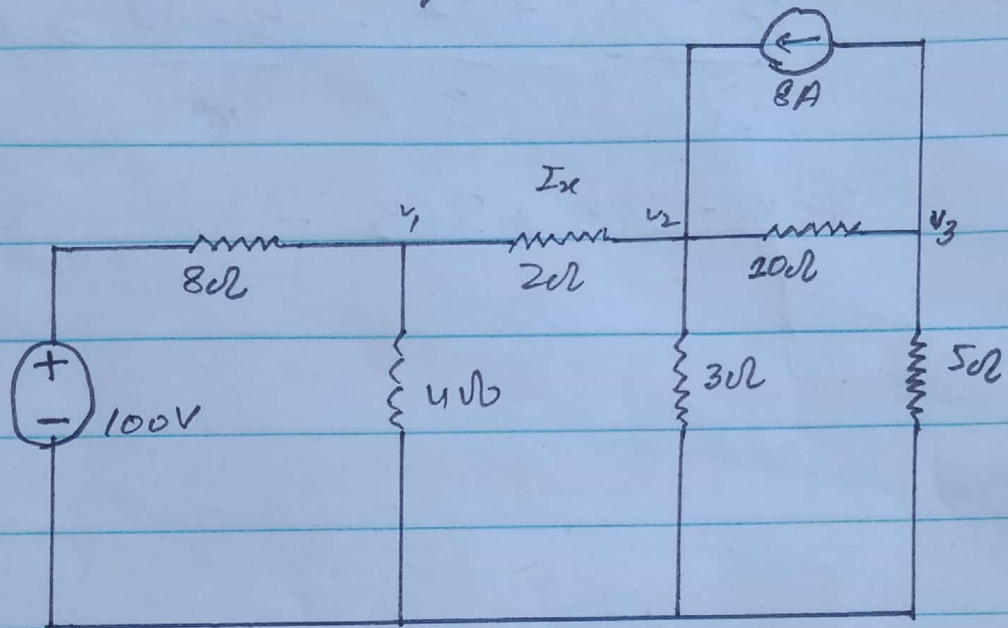 8A
Ix
V1
V2
V3
8Ω
2Ω
10Ω
+
-
100V
4Ω
3Ω
5Ω